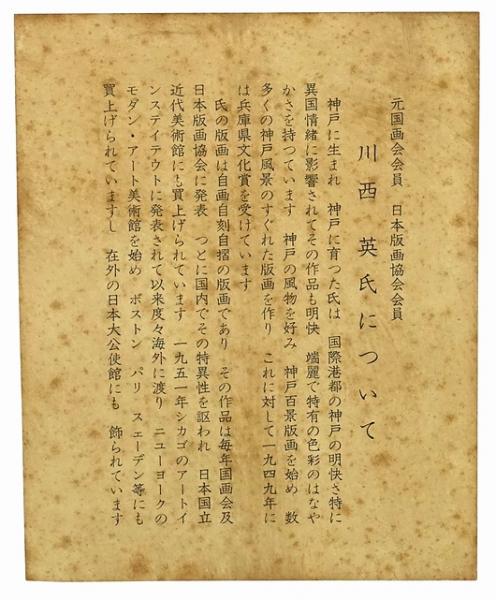 元国画会会員　日本版画協会会員
川西英氏について
神戸に生まれ　神戸に育つた氏は　国際港都の神戸の明快さ特に
異国情緒に影響されてその作品も明快　端麗で特有の色彩のはなや
かさを持つています　神戸の風物を好み　神戸百景版画を始め　数
多くの神戸風景のすぐれた版画を作り　これに対して一九四九年に
は兵庫県文化賞を受けています
氏の版画は自画自刻自摺の版画であり　その作品は毎年国画会及
日本版画協会に発表　つとに国内でその特異性を謳われ　日本国立
近代美術館にも買上げられています　一九五一年シカゴのアートイ
ンステイテウトに発表されて以来度々海外に渡り　ニューヨークの
モダン・アート美術館を始め　ボストン　パリ　スエーデン等にも
買上げられていますし　在外の日本大公使館にも　飾られています